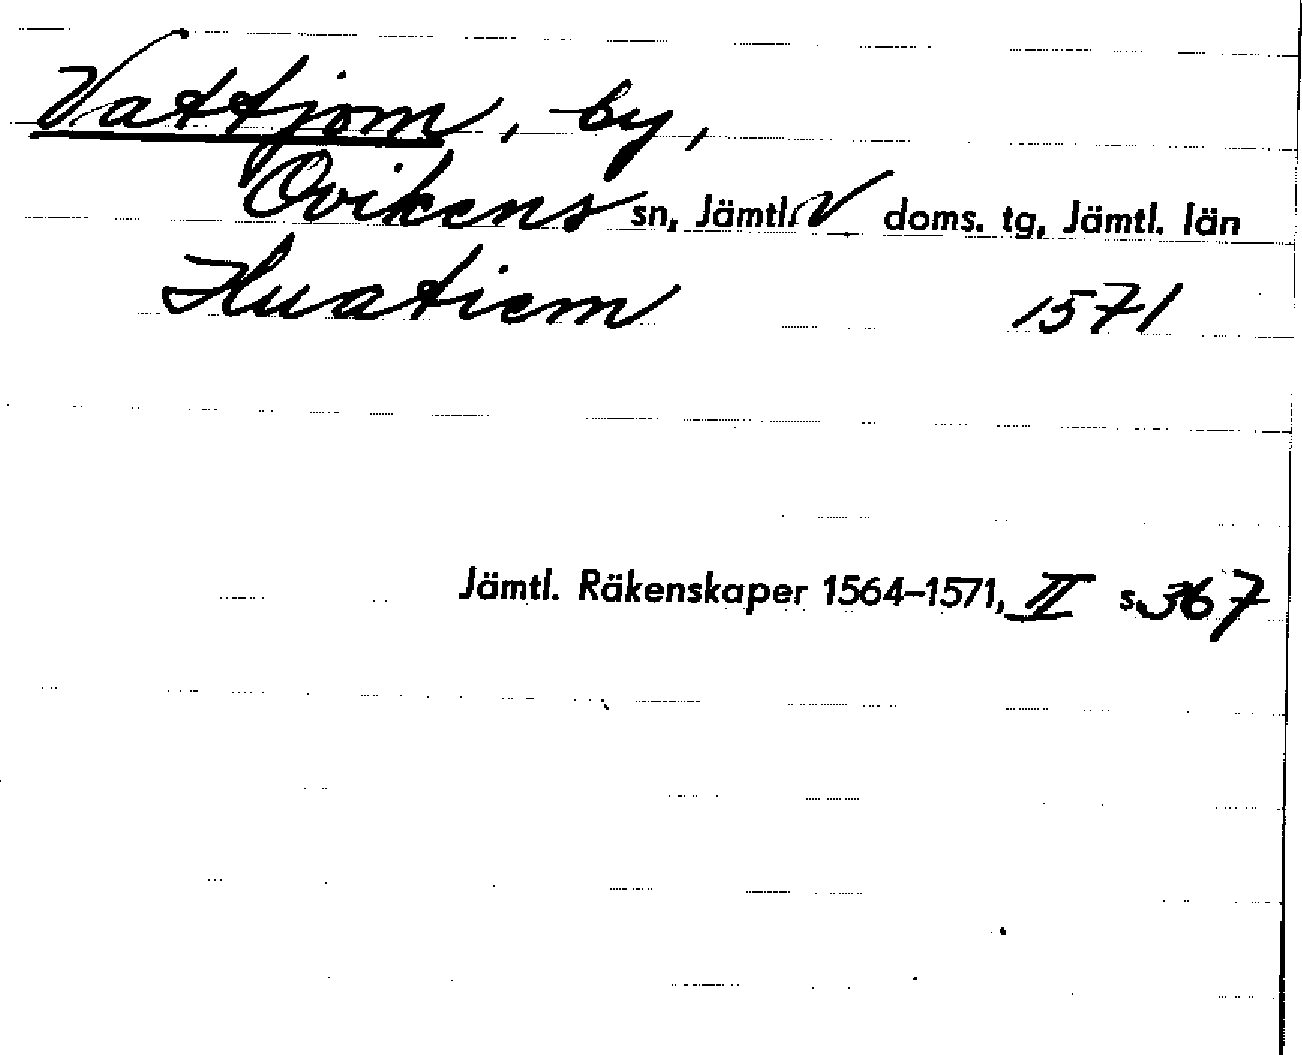 Vattjom, by,
Ovikens sn, Jämtl. V doms. tg, Jämtl. län
Huatiem 1571
Jämtl. Räkenskaper 1564–1571, II s. 367